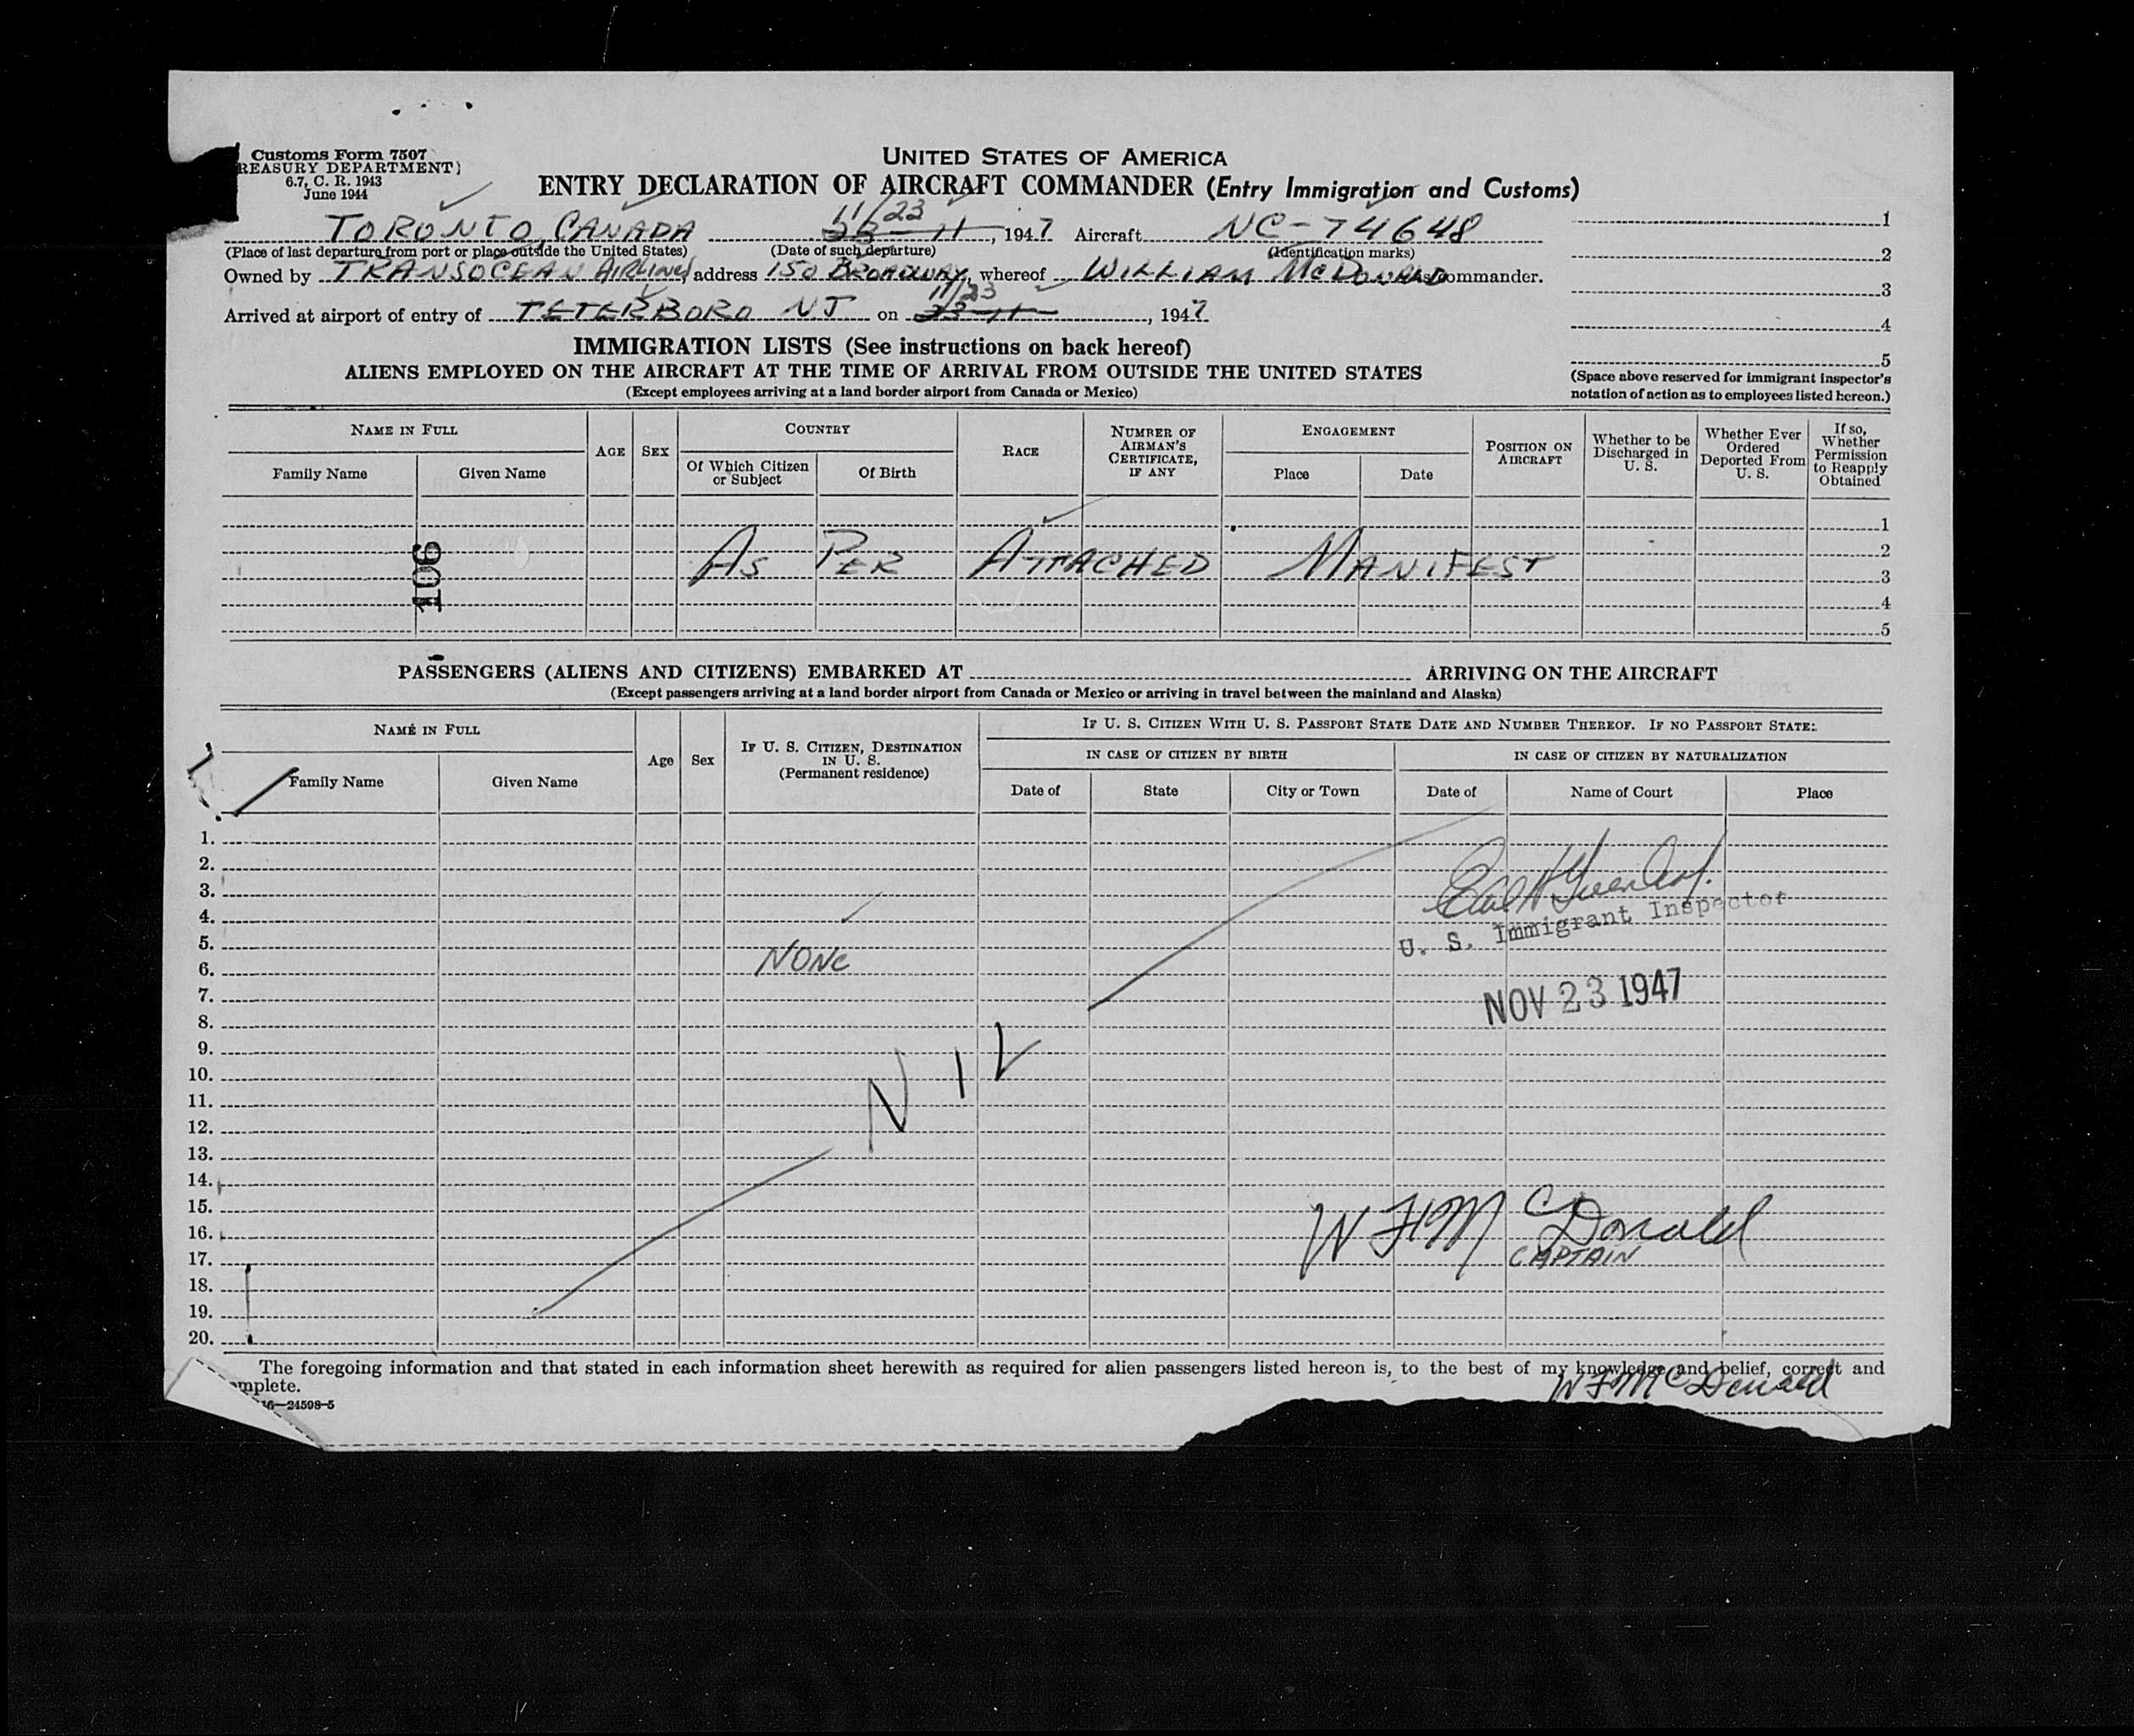 Customs Form 7507
REASURY DEPARTMENT)
6.7, C. R. 1943
June 1944
UNITED STATES OF AMERICA
ENTRY DECLARATION OF AIRCRAFT COMMANDER (Entry Immigration and Customs)
TORONTO, CANADA 11/23 23-11, 1947 Aircraft NC-74648
(Place of last departure from port or place outside the United States) (Date of such departure) (Identification marks)
Owned by TRANSOCEAN AIRLINES address 150 BROADWAY, whereof WILLIAM McDONALD commander.
Arrived at airport of entry of TETERBORO NJ on 11/23 23-11, 1947
1
2
3
4
5
(Space above reserved for immigrant inspector's
notation of action as to employees listed hereon.)
IMMIGRATION LISTS (See instructions on back hereof)
ALIENS EMPLOYED ON THE AIRCRAFT AT THE TIME OF ARRIVAL FROM OUTSIDE THE UNITED STATES
(Except employees arriving at a land border airport from Canada or Mexico)
NAME IN FULL
Family Name
Given Name
AGE
SEX
COUNTRY
Of Which Citizen
or Subject
Of Birth
RACE
NUMBER OF
AIRMAN'S
CERTIFICATE,
IF ANY
ENGAGEMENT
Place
Date
POSITION ON
AIRCRAFT
Whether to be
Discharged in
U. S.
Whether Ever
Ordered
Deported From
U. S.
If so,
Whether
Permission
to Reapply
Obtained
1
2
3
4
5
106
AS PER ATTACHED MANIFEST
PASSENGERS (ALIENS AND CITIZENS) EMBARKED AT ARRIVING ON THE AIRCRAFT
(Except passengers arriving at a land border airport from Canada or Mexico or arriving in travel between the mainland and Alaska)
NAME IN FULL
Family Name
Given Name
Age
Sex
IF U. S. CITIZEN, DESTINATION
IN U. S.
(Permanent residence)
IF U. S. CITIZEN WITH U. S. PASSPORT STATE DATE AND NUMBER THEREOF. IF NO PASSPORT STATE:
IN CASE OF CITIZEN BY BIRTH
Date of
State
City or Town
IN CASE OF CITIZEN BY NATURALIZATION
Date of
Name of Court
Place
1.
2.
3.
4.
5.
6.
7.
8.
9.
10.
11.
12.
13.
14.
15.
16.
17.
18.
19.
20.
U. S. Immigrant Inspector
NONE
NOV 23 1947
NIL
WF McDonald
CAPTAIN
The foregoing information and that stated in each information sheet herewith as required for alien passengers listed hereon is, to the best of my knowledge and belief, correct and
mplete.
WF McDonald
16—24598-5